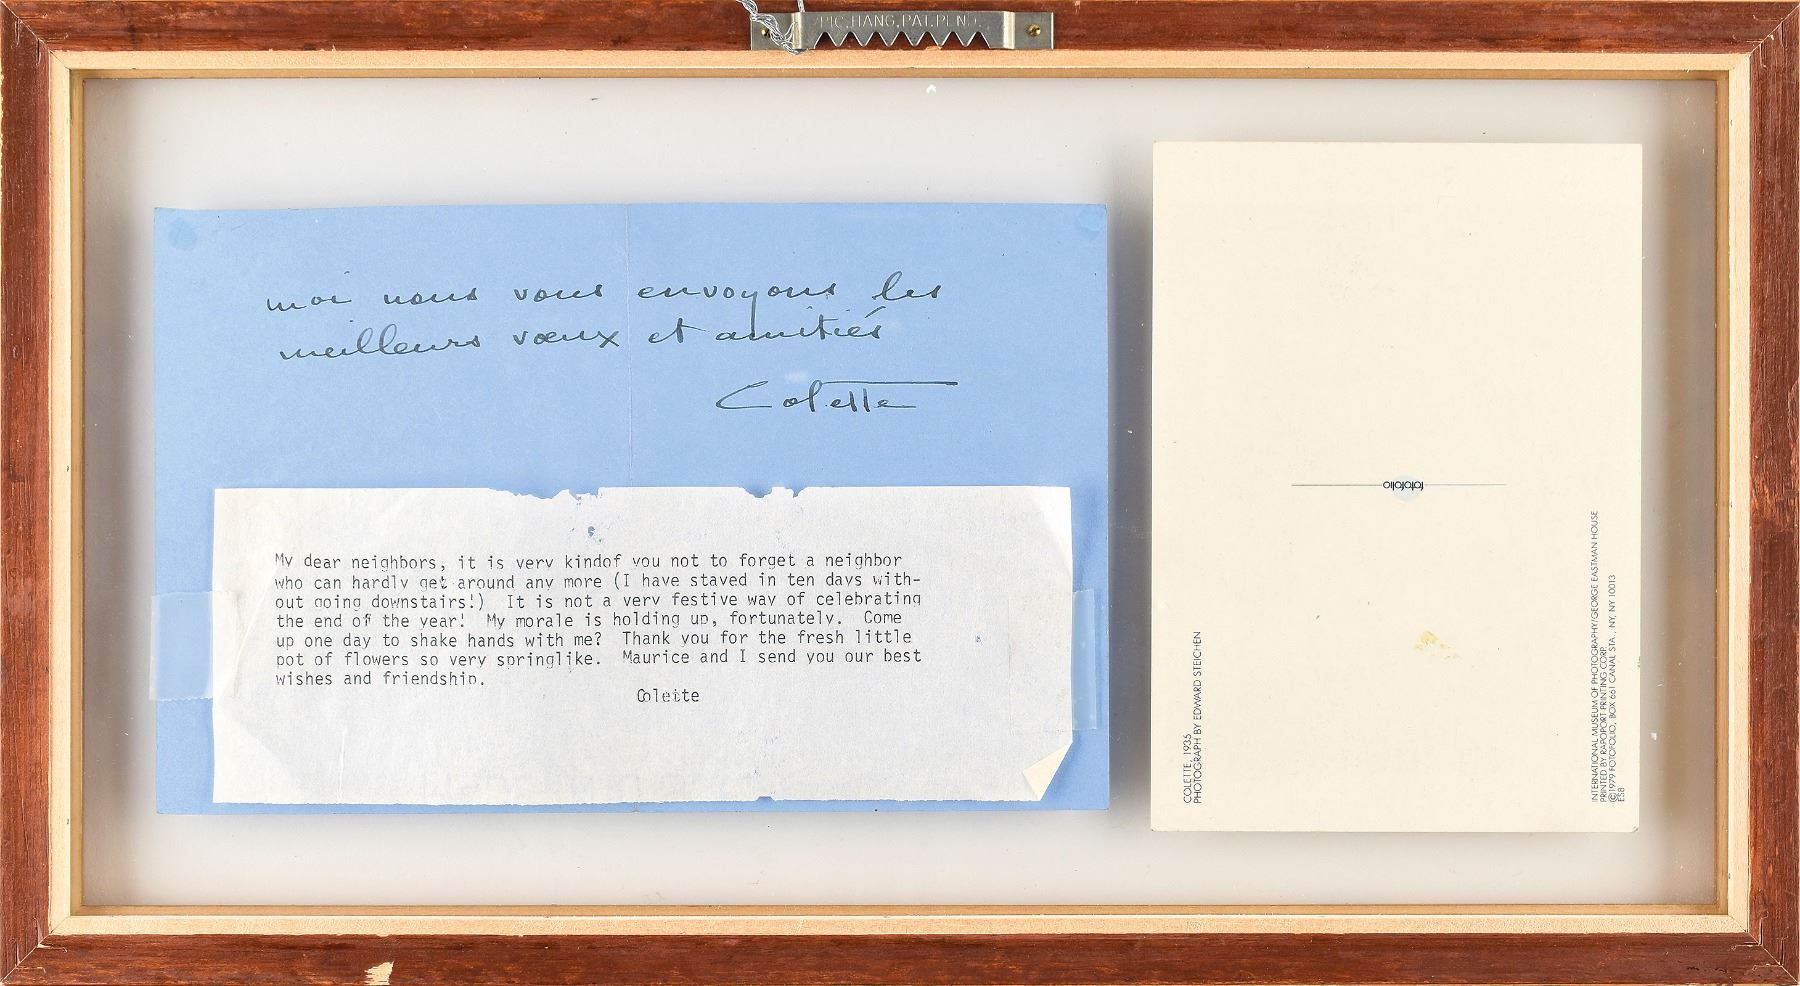 PIC.HANG.PAT.PEND.
moi nous vous envoyons les
meilleurs vœux et amitiés
Colette
My dear neighbors, it is very kindof you not to forget a neighbor
who can hardly get around any more (I have stayed in ten days with-
out going downstairs!)  It is not a very festive way of celebrating
the end of the year!  My morale is holding up, fortunately.  Come
up one day to shake hands with me?  Thank you for the fresh little
pot of flowers so very springlike.  Maurice and I send you our best
wishes and friendship.
Colette
fotofolio
COLETTE, 1935
PHOTOGRAPH BY EDWARD STEICHEN
INTERNATIONAL MUSEUM OF PHOTOGRAPHY/GEORGE EASTMAN HOUSE
PRINTED BY RAPOPORT PRINTING CORP.
©1979 FOTOFOLIO, BOX 661 CANAL STA., NY, NY 10013
ES8